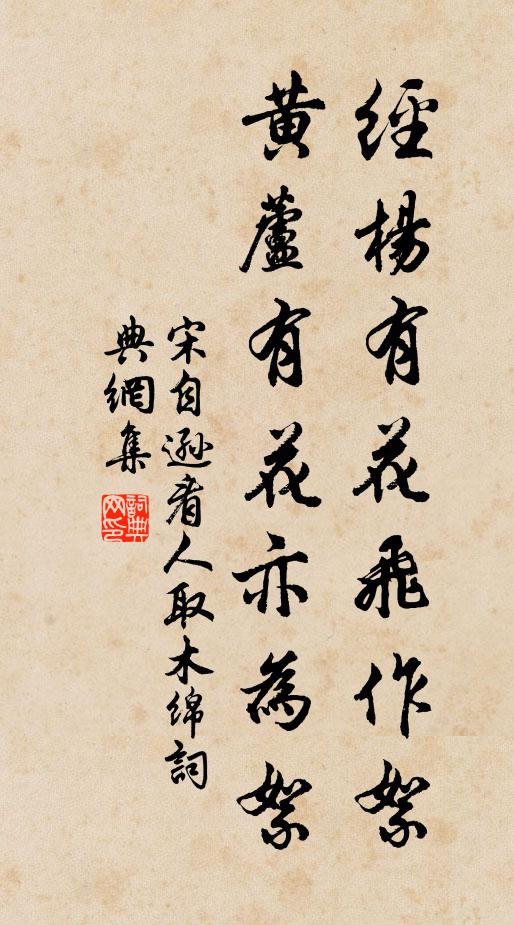 經楊有花飛作絮
黃蘆有花亦為絮
宋自遜看人取木綿詞
典網集
詞典網印